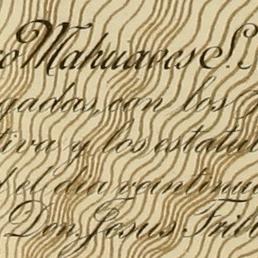 Mahuaves S.
gadas, con los
tiva y los estatu
el dia veintinu
Don Jesus Trib